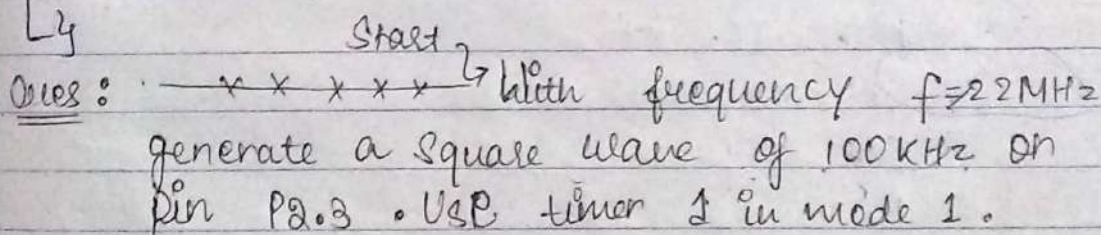 Start
Ques: With frequency f=22MHz
generate a square wave of 100KHz on
Pin P2.3. Use timer 1 in mode 1.